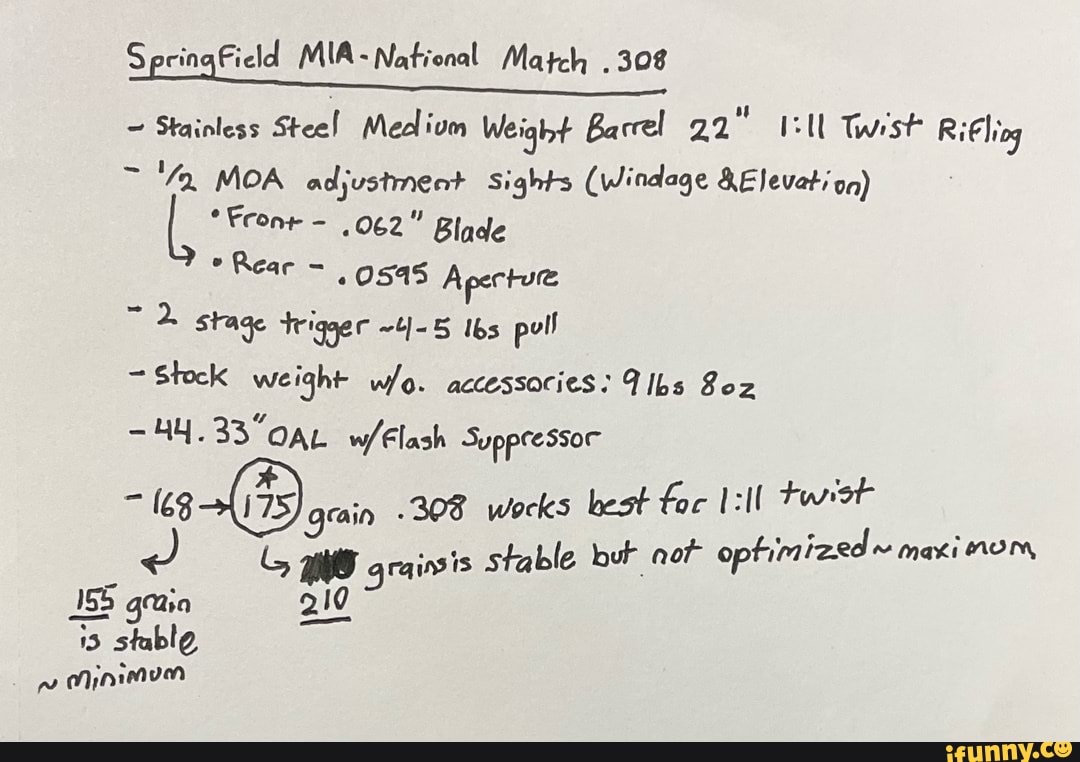 Springfield M1A-National Match .308
- Stainless Steel Medium Weight Barrel 22" 1:11 Twist Rifling
- 1/2 MOA adjustment sights (Windage & Elevation)
• Front - .062" Blade
• Rear - .0595 Aperture
- 2 stage trigger ~4-5 lbs pull
- Stock weight w/o. accessories: 9 lbs 8oz
- 44.33" OAL w/Flash Suppressor
- 168 → 175 grain .308 works best for 1:11 twist
↳ grains is stable but not optimized ~ maximum
210
155 grain
is stable
~ minimum
ifunny.co